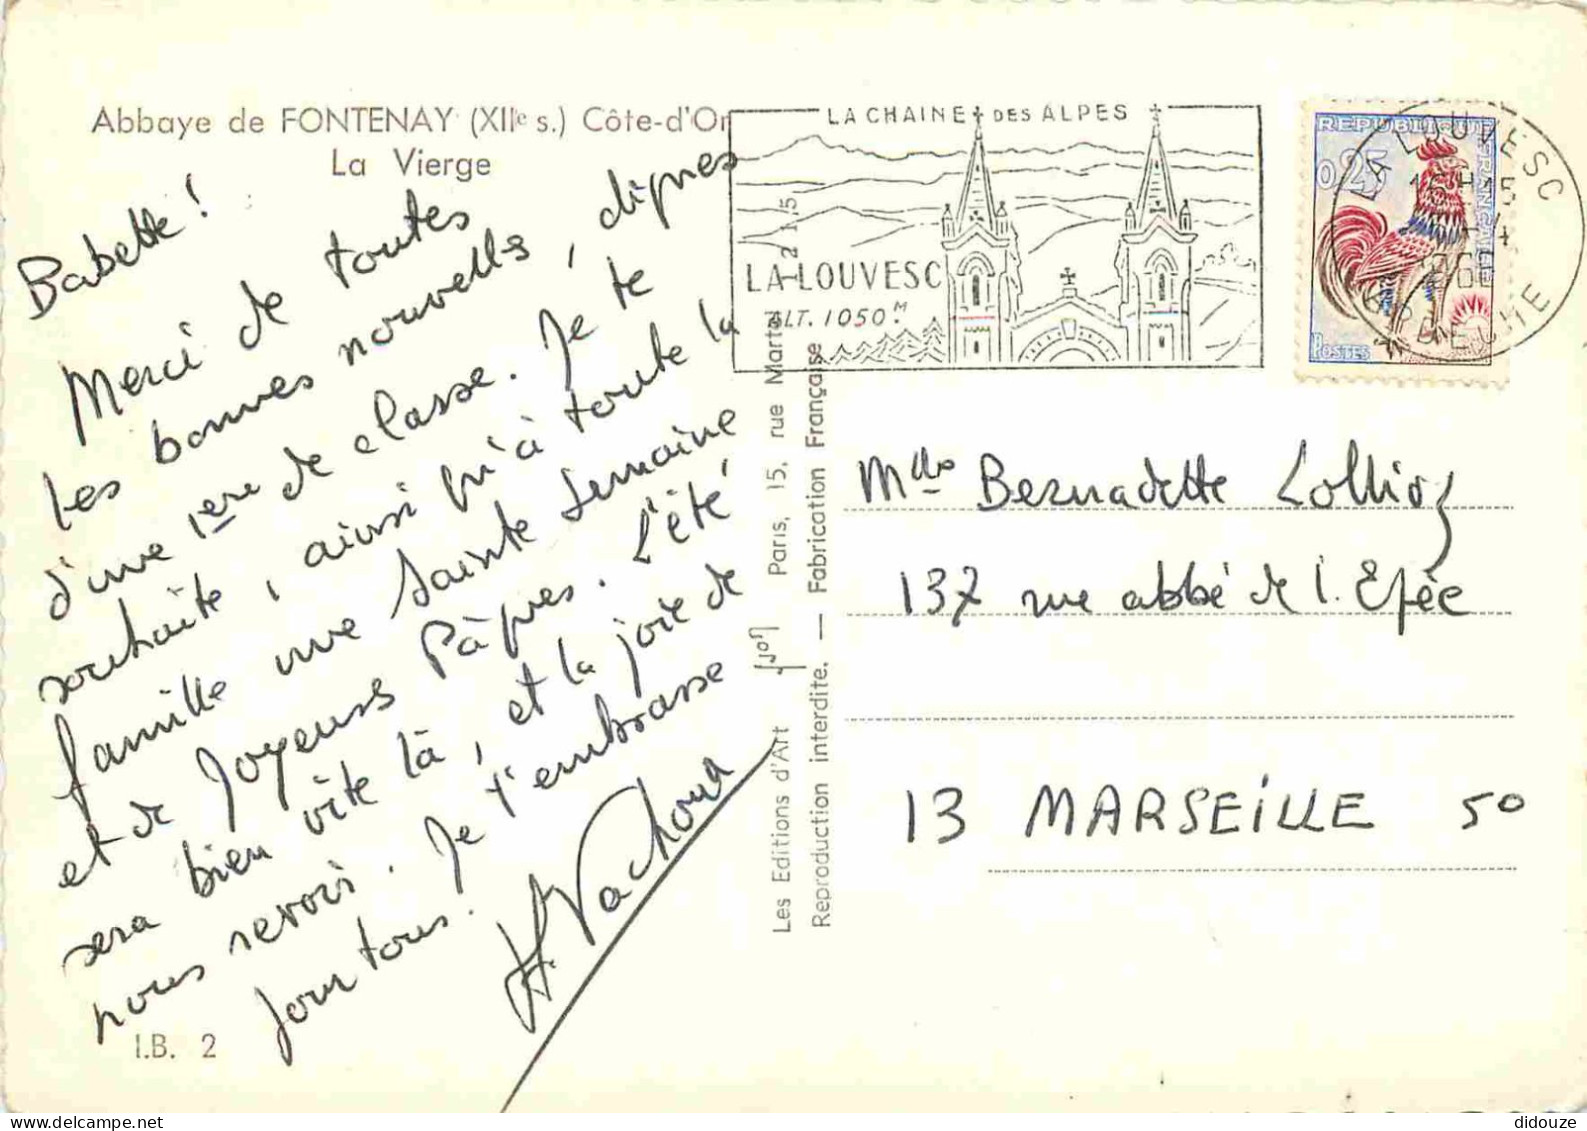 Abbaye de FONTENAY (XIIe s.) Côte-d'Or
La Vierge
Babette!
Merci de toutes
tes bonnes nouvelles, dignes
d'une 1ere de classe. Je te
souhaite, ainsi qu'à toute la
famille une Sainte Semaine
et de Joyeuses Pâques. L'été
sera bien vite là, et la joie de
nous revoir. Je t'embrasse
pour tous.
I.B. 2
Les Editions d'Art Yvon Paris, 15, rue Martel 1 2 1 5
Reproduction interdite. — Fabrication Française
LA CHAINE DES ALPES
LA LOUVESC
ALT. 1050 M
REPUBLIQUE FRANCAISE
0,25
POSTES
LA LOUVESC
16H15
ARDECHE
Mlle Bernadette
137 rue abbé de l'Epée
13 MARSEILLE 5o
didouze